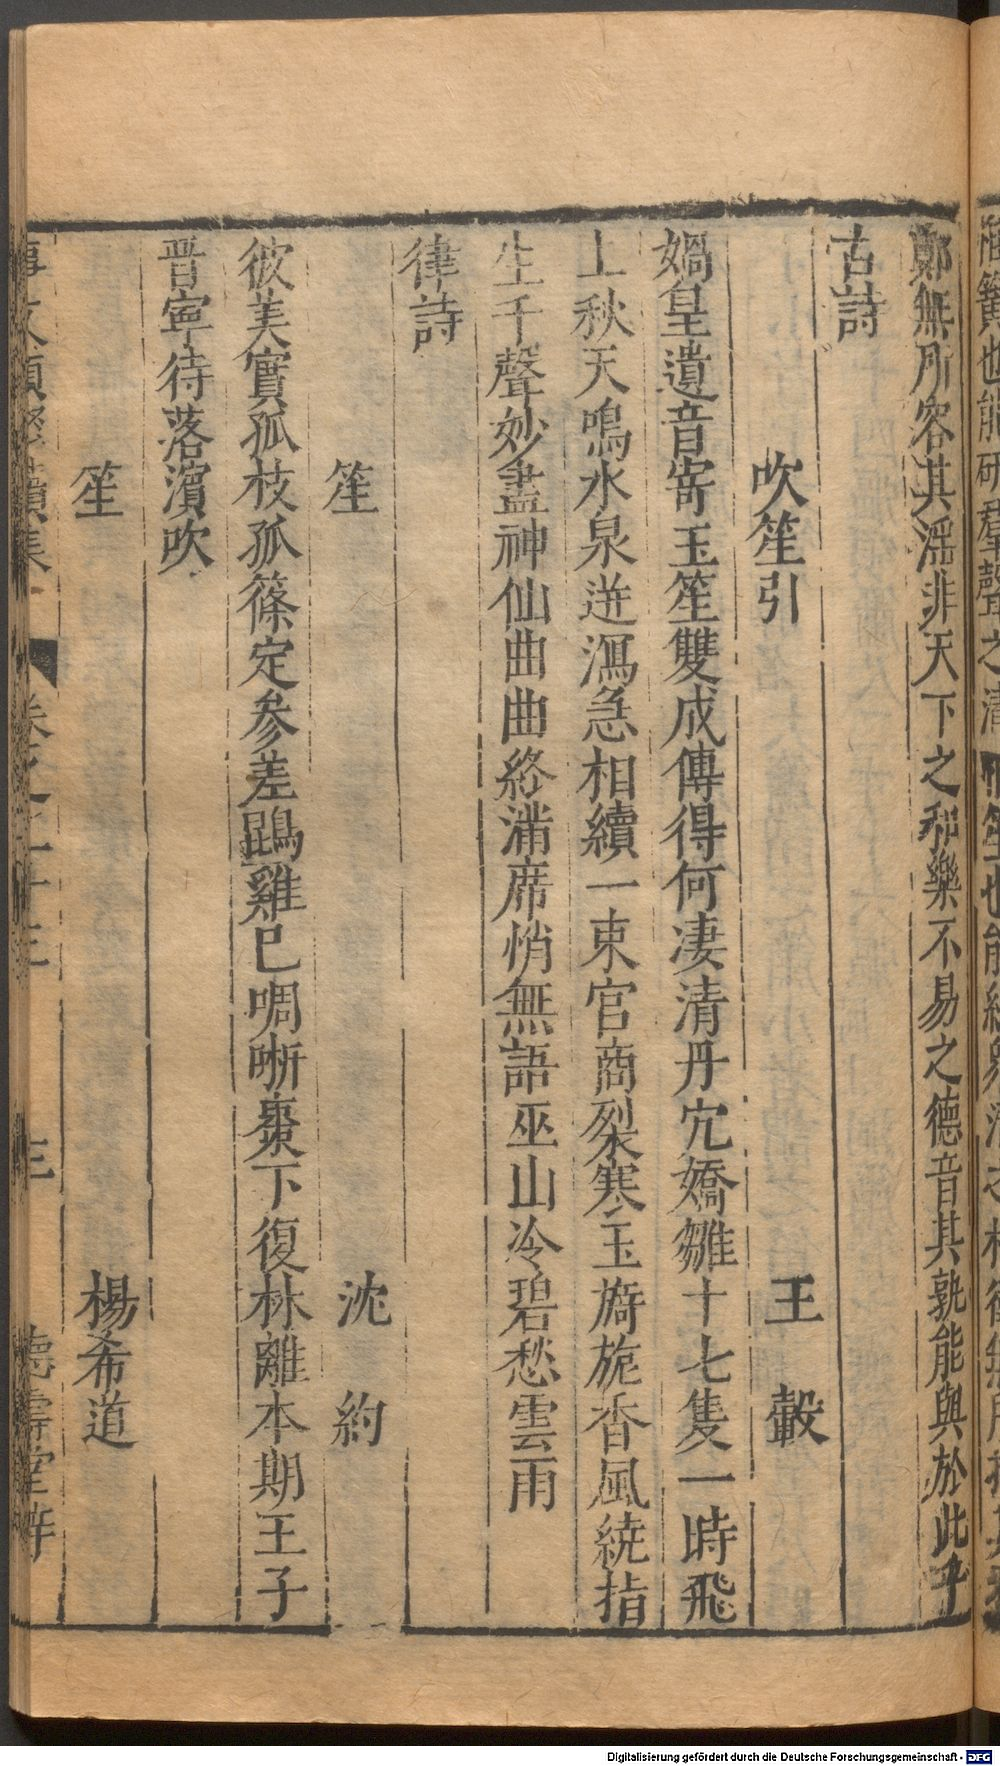 鄭無所容其滛非天下之和樂不易之德音其孰能與於此乎
古詩
吹笙引 王轂
媧皇遺音寄玉笙雙成傳得何淒清丹穴嬌雛十七隻一時飛
上秋天鳴水泉迸瀉急相續一束宮商裂寒玉旖旎香風繞指
生千聲妙盡神仙曲曲終滿席悄無語巫山冷碧愁雲雨
律詩
笙 沈約
彼美實孤枝孤篠定參差鵾雞已啁哳棗下復林離本期王子
晋寧待落濵吹
笙 楊希道
Digitalisierung gefördert durch die Deutsche Forschungsgemeinschaft - DFG